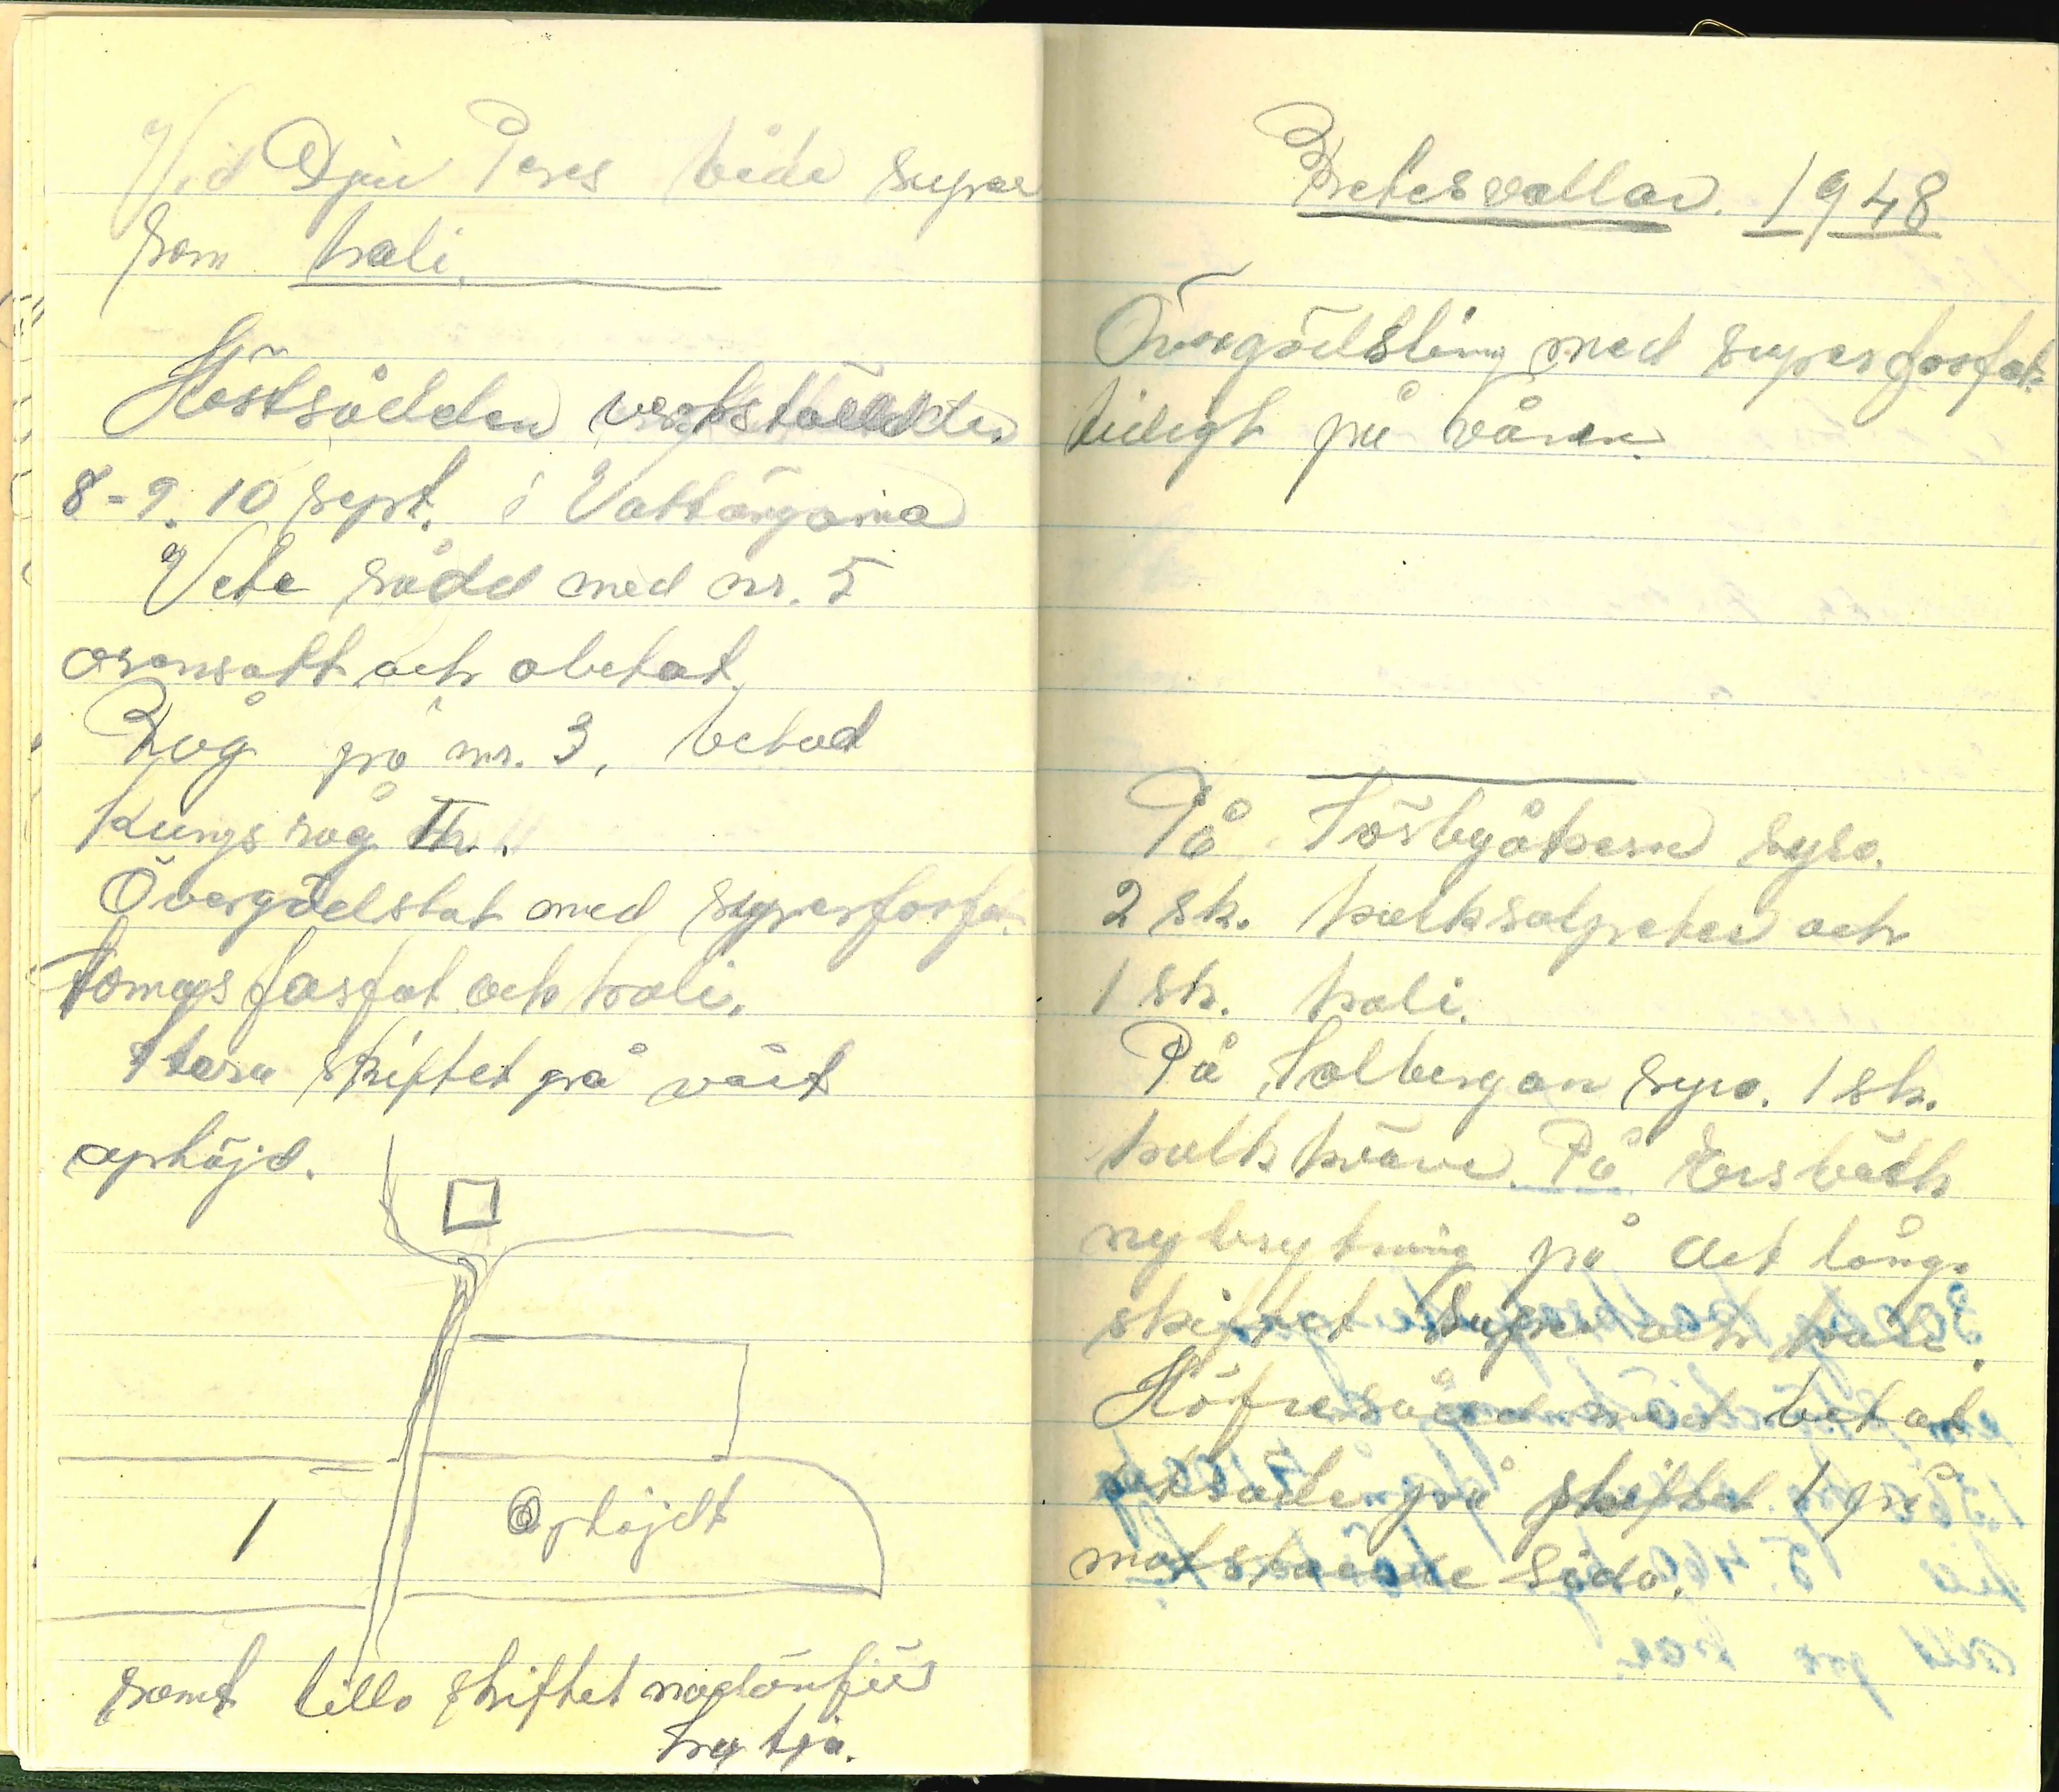 Vid Djur Pers både super
som kali.
Höstsådden verkställdes
8-9. 10 sept. i Vattängarna
Vete sådd med nr. 5
orensatt och obetat.
Råg på nr. 3, betad
Kungsråg II.
Övergödslat med superfosfat
tomasfosfat och kali.
Stora skiftet på vårt
uphöjd.
1
Ophöjdt
samt lilla skiftet nedanför
Betesvallar. 1948
Övergödsling med superfosfat
tidigt på våren.
På Försbyåkern syra.
2 sk. kalksalpeter och
1 sk. kali.
På Solbergan syra. 1 sk.
kalkkväve. På
nybrytning på det lång.
skiftet super och kali.
Höfrö
på skiftet 1 på
motstående sida.